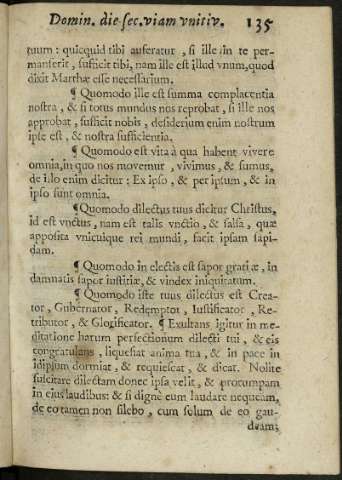 Domin. die sec. viam vnitiv. 135
tuum: quicquid tibi auferatur, si ille in te per-
manserit, sufficit tibi, nam ille est illud vnum, quod
dixit Marthæ esse necessarium.
¶ Quomodo ille est summa complacentia
nostra, & si totus mundus nos reprobat, si ille nos
approbat, sufficit nobis, desiderium enim nostrum
ipse est, & nostra sufficientia.
¶ Quomodo est vita à qua habent vivere
omnia, in quo nos movemur, vivimus, & sumus,
de illo enim dicitur: Ex ipso, & per ipsum, & in
ipso sunt omnia.
¶ Quomodo dilectus tuus dicitur Christus,
id est vnctus, nam est talis vnctio, & salsa, quæ
apposita vnicuique rei mundi, facit ipsam sapi-
dam.
¶ Quomodo in electis est sapor gratiæ, in
damnatis sapor iustitiæ, & vindex iniquitatum.
¶ Quomodo iste tuus dilectus est Crea-
tor, Gubernator, Redemptor, Iustificator, Re-
tributor, & Glorificator. ¶ Exultans igitur in me-
ditatione harum perfectionum dilecti tui, & eis
congratulans, liquefiat anima tua, & in pace in
idipsum dormiat, & requiescat, & dicat. Nolite
suscitare dilectam donec ipsa velit, & prorumpam
in ejus laudibus: & si dignè eum laudare nequeam,
de eo tamen non silebo, cum solum de eo gau-
deam;